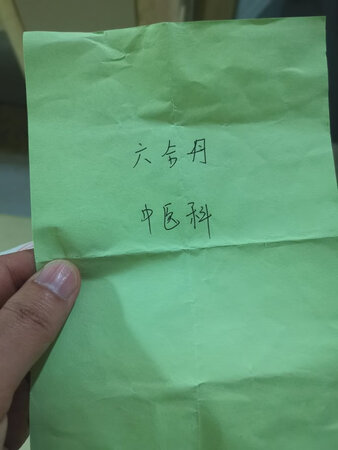 六合丹
中医科